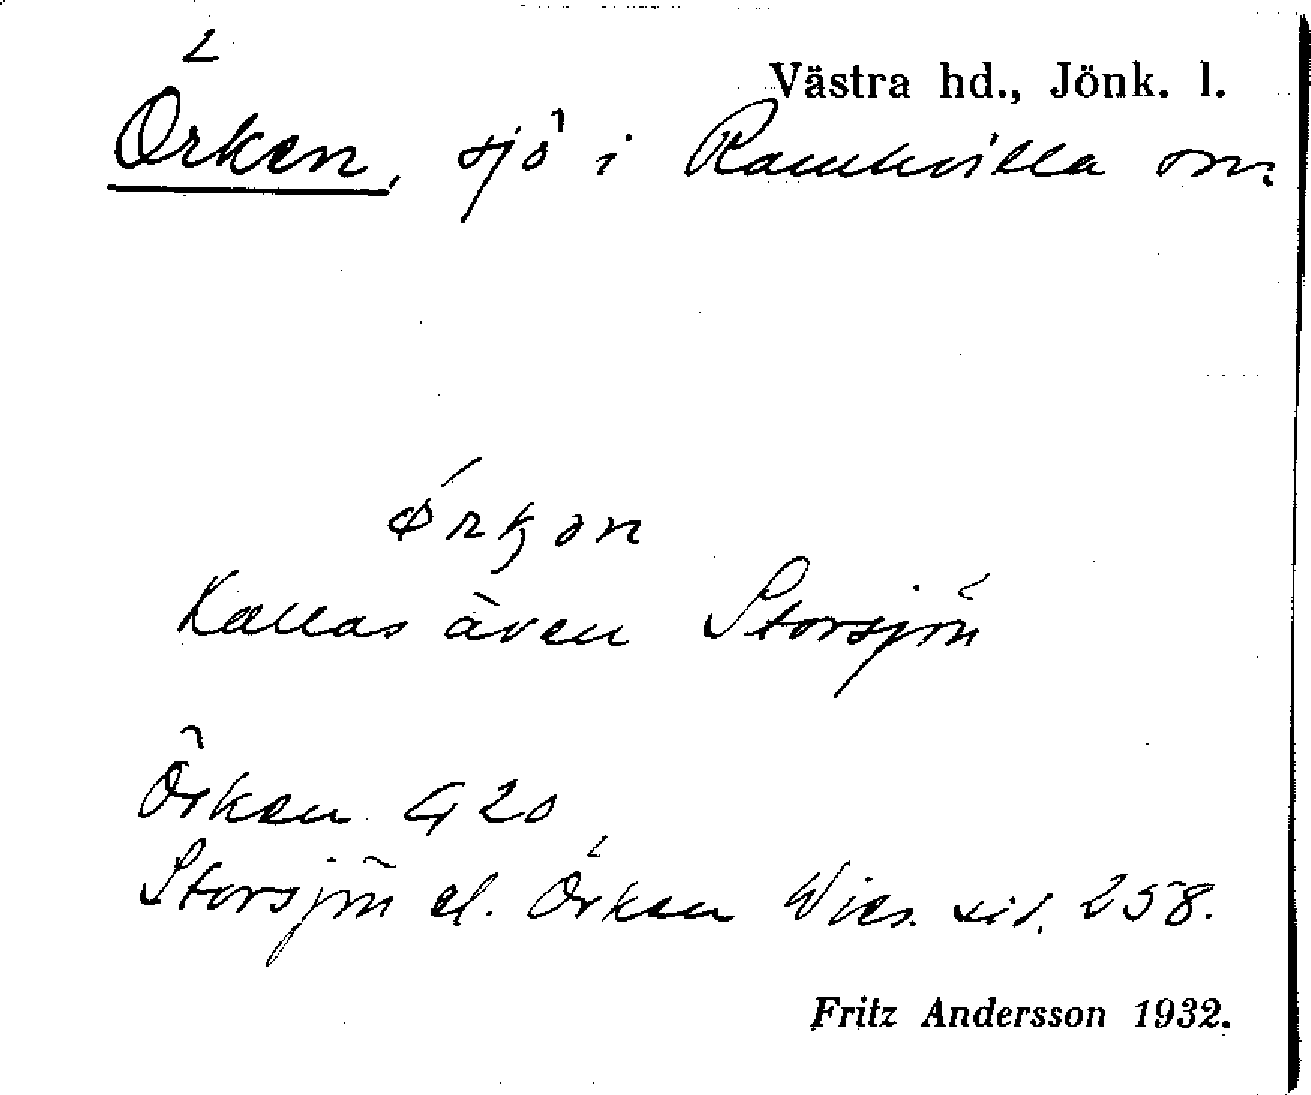 Västra hd., Jönk. l.
Örken, sjö i Ramkvilla sn.
Kallas även Storsjön
Örken G 20
Storsjön el. Örken Wies. sid. 258.
Fritz Andersson 1932.